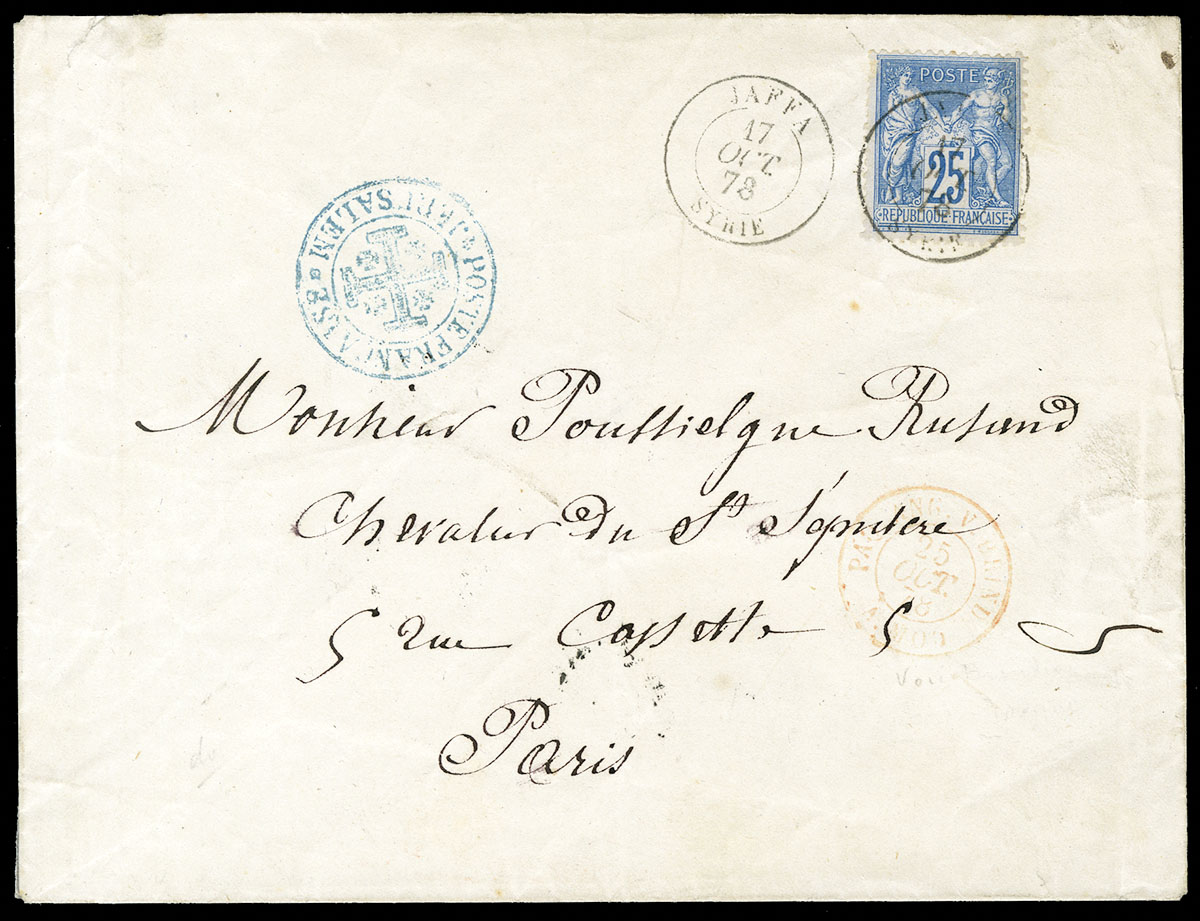 JAFFA
17
OCT.
78
SYRIE
POSTE
25
RÉPUBLIQUE FRANÇAISE
17
OCT
78
SYRIE
POSTE FRANÇAISE
JERUSALEM
Monsieur Poussielgue Rusand
Chevalier du St Sépulcre
5 rue Cassette 5
Paris
25
OCT.
78